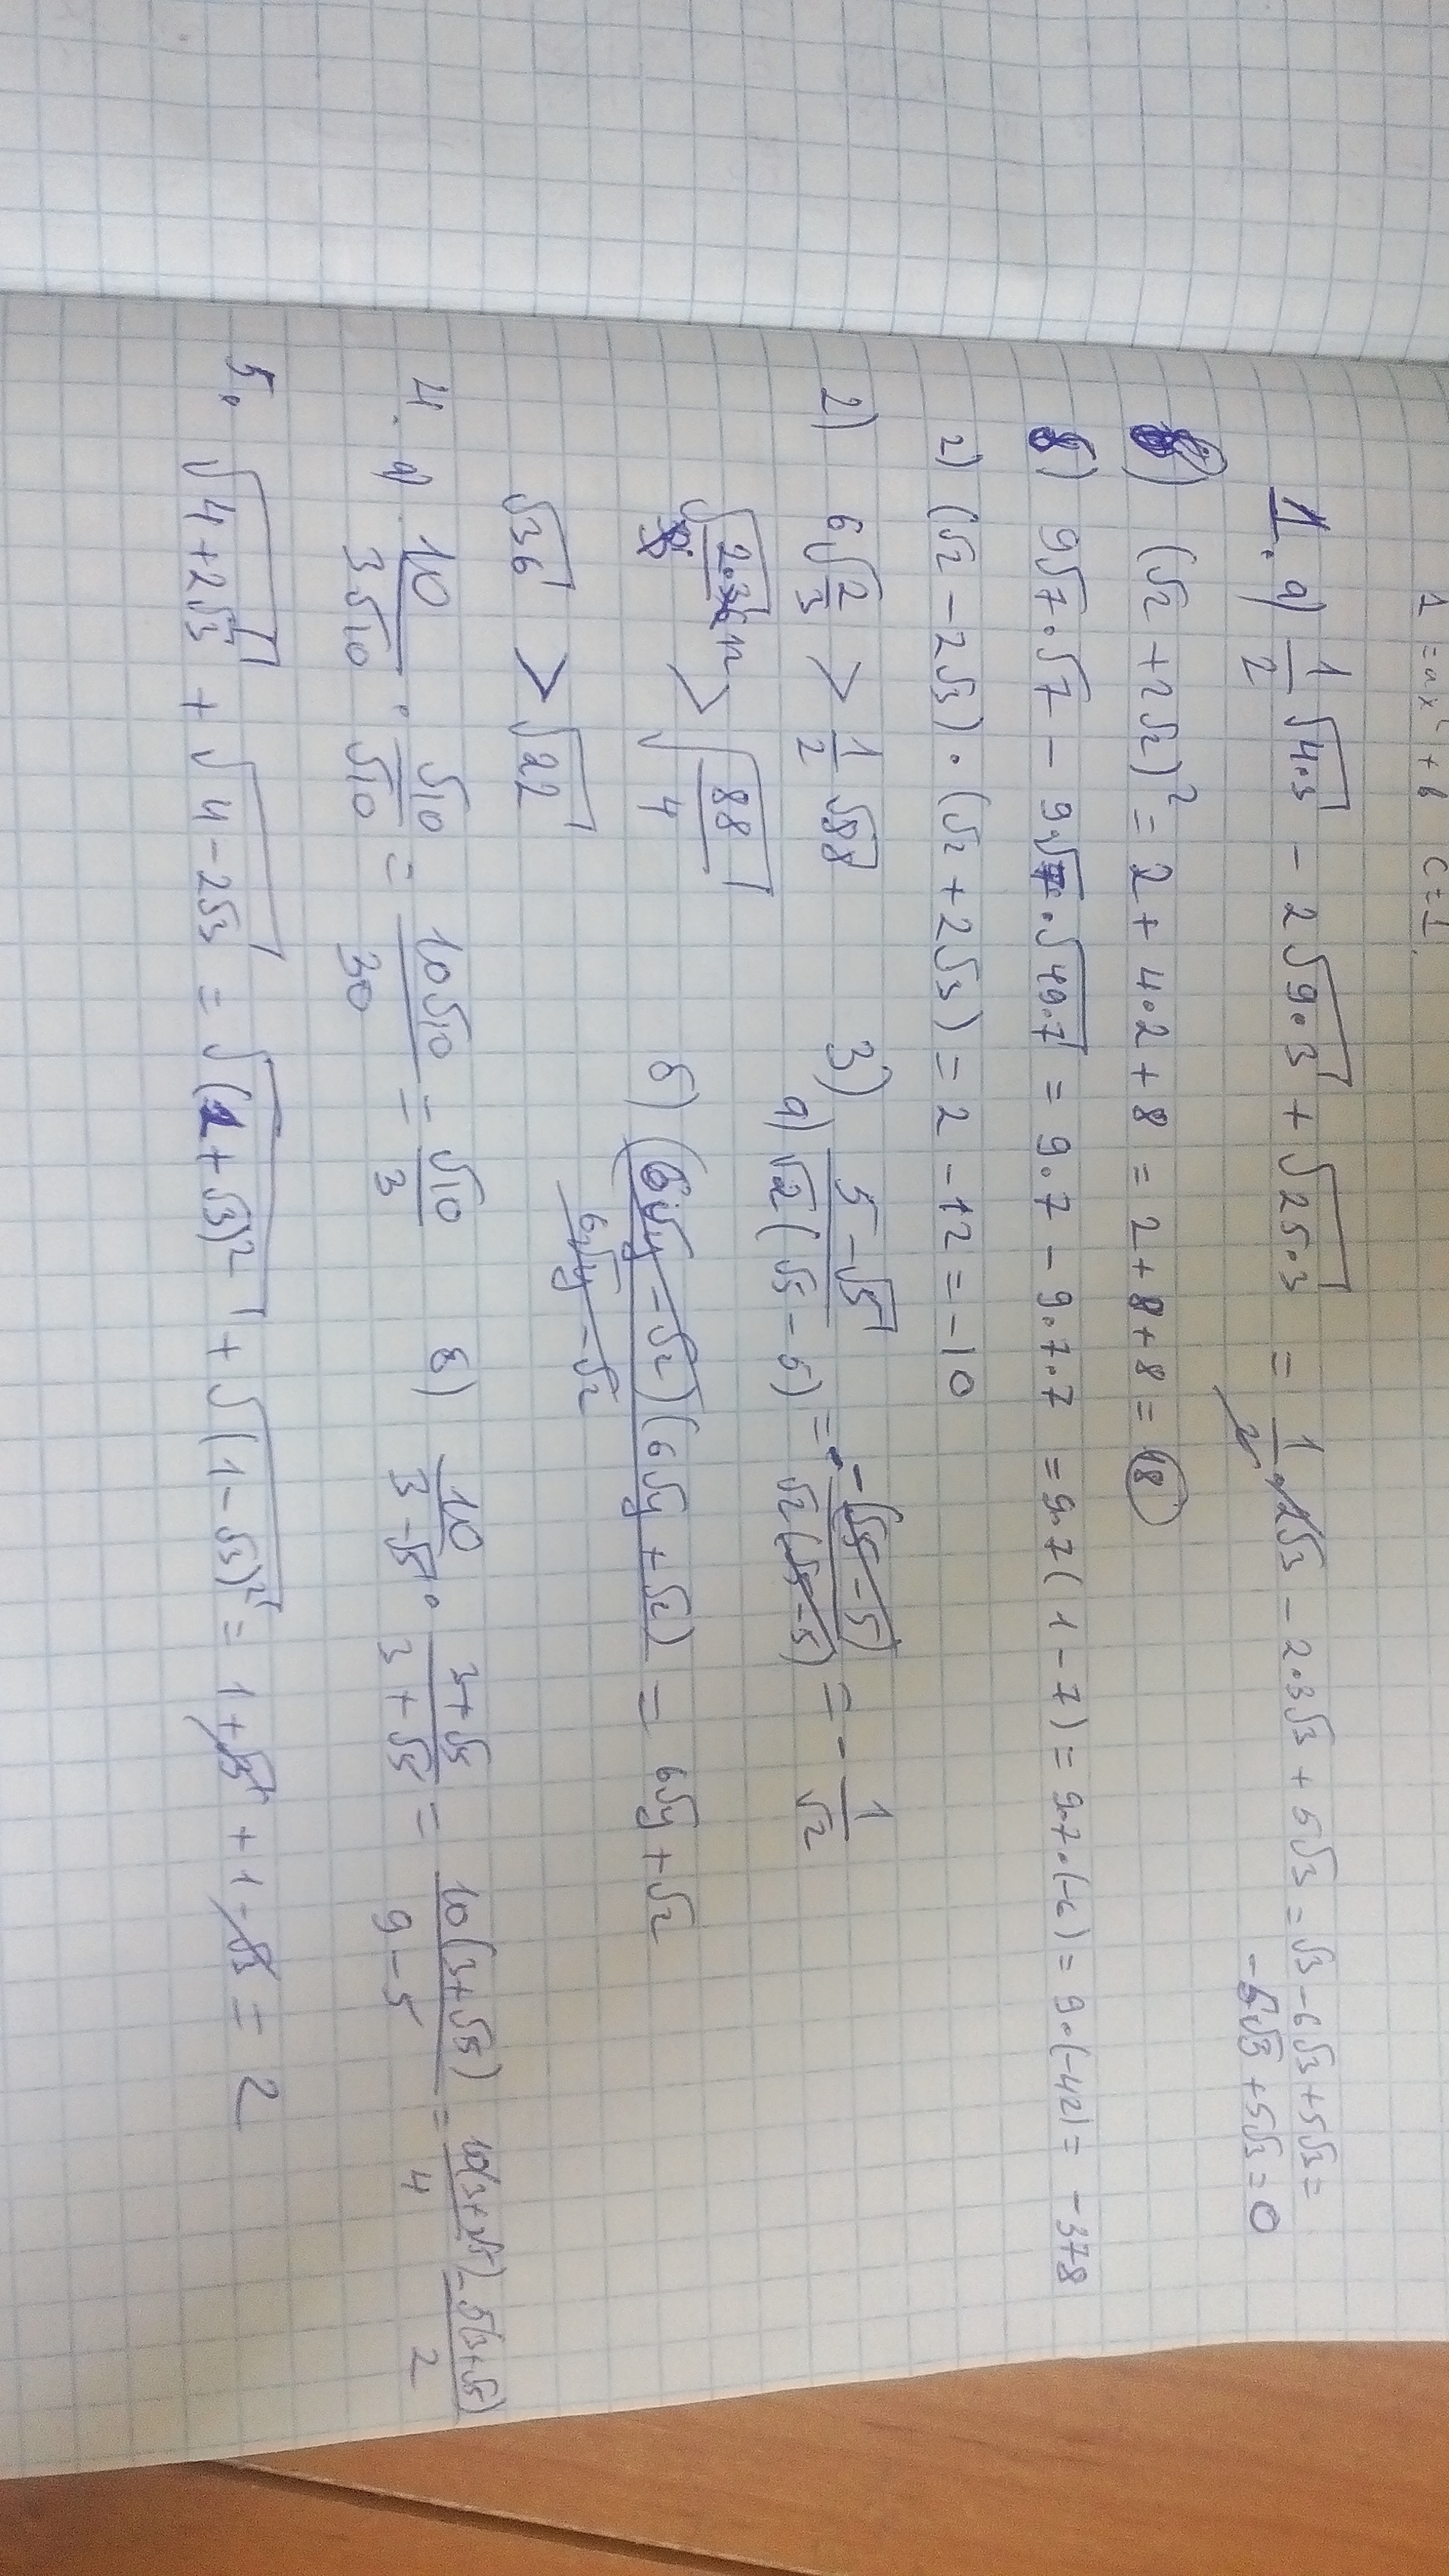 1 = ax² + b  c = 1
1. а) 1/2 √(4·3) − 2√(9·3) + √(25·3) = 1/2 · 2√3 − 2·3√3 + 5√3 = √3 − 6√3 + 5√3 =
−5√3 + 5√3 = 0
(√2 + 2√2)² = 2 + 4·2 + 8 = 2 + 8 + 8 = 18
9√7 · √7 − 9√7 · √(49·7) = 9·7 − 9·7·7 = 9·7(1 − 7) = 9·7·(−6) = 9·(−42) = −378
г) (√2 − 2√3) · (√2 + 2√3) = 2 − 12 = −10
2) 6√(2/3) > 1/2 √88
> √(88/4)
√36 > √22
3)
а) (5 − √5)/(√2(√5 − 5)) = −(√5 − 5)/(√2(√5 − 5)) = −1/√2
б) (6√y − √2)(6√y + √2)/(6√y − √2) = 6√y + √2
4. а) 10/(3√10) · √10/√10 = 10√10/30 = √10/3
б) 10/(3 − √5) · (3 + √5)/(3 + √5) = 10(3 + √5)/(9 − 5) = 10(3 + √5)/4 = 5(3 + √5)/2
5. √(4 + 2√3) + √(4 − 2√3) = √((1 + √3)²) + √((1 − √3)²) = 1 + √3 + 1 − √3 = 2